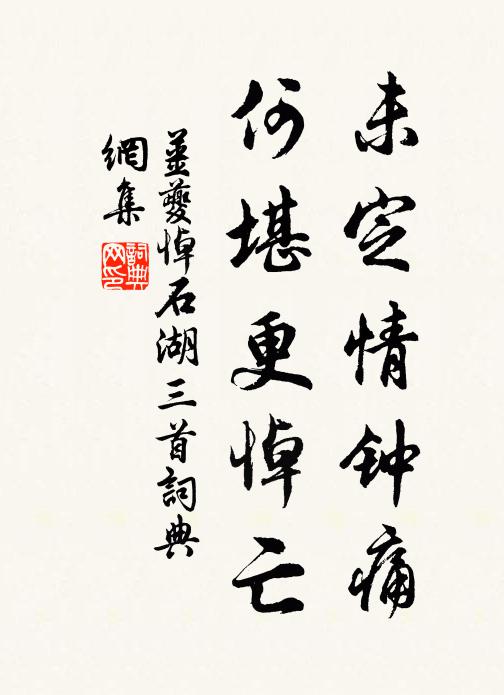 未定情钟痛
何堪更悼亡
姜夔悼石湖三首詞典
網集
詞典
网印